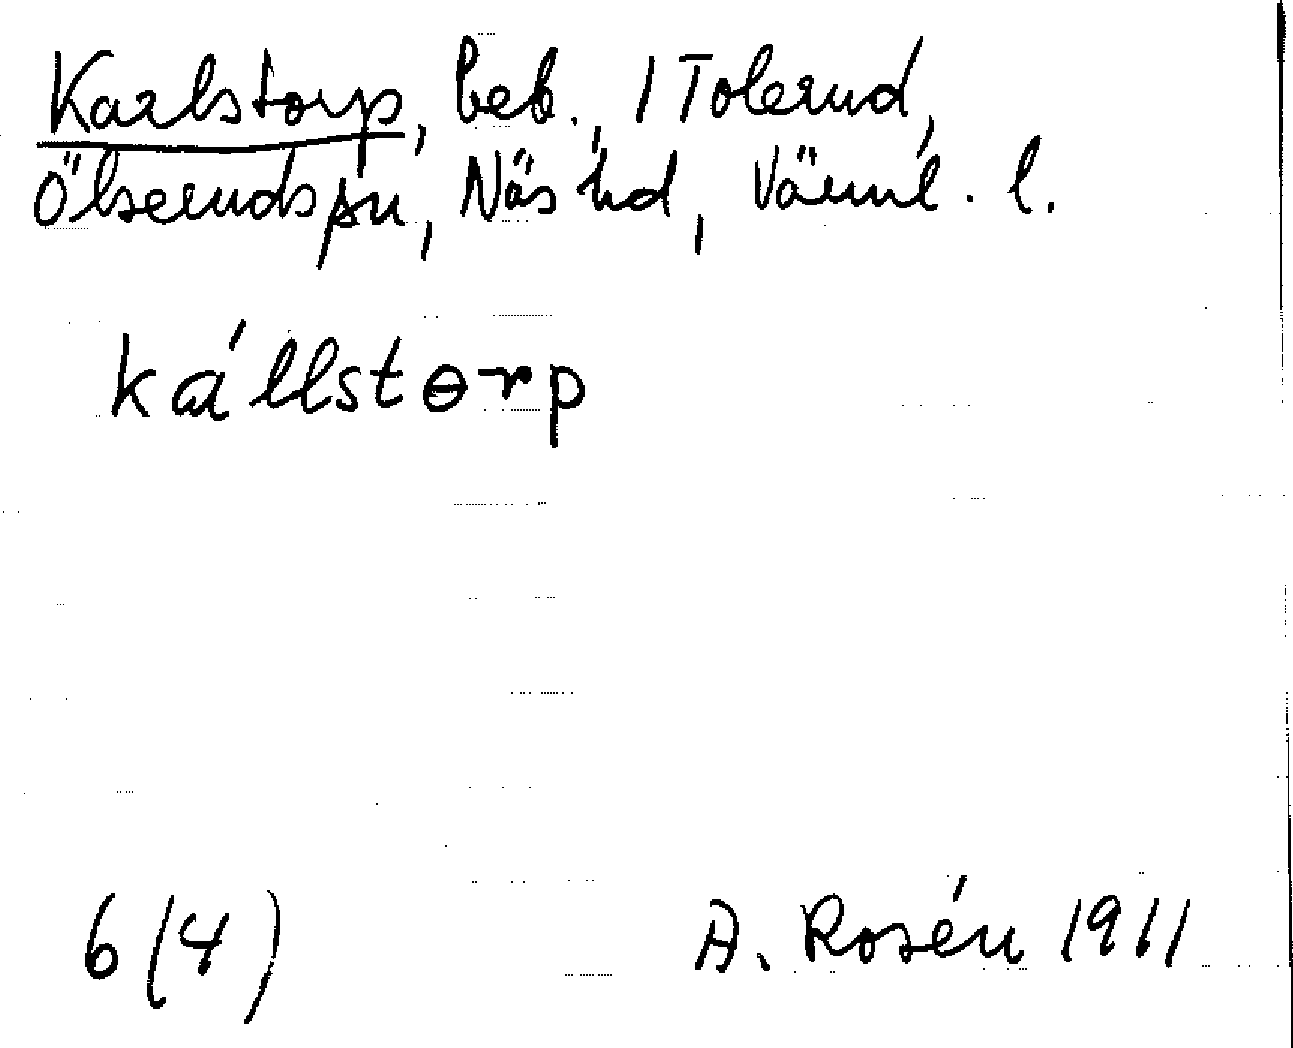 Karlstorp, beb., 1 Tolerud,
Ölseruds sn, Näs hd, Värml. l.
ká'llstɵrp
6 (4) A. Rosén 1911